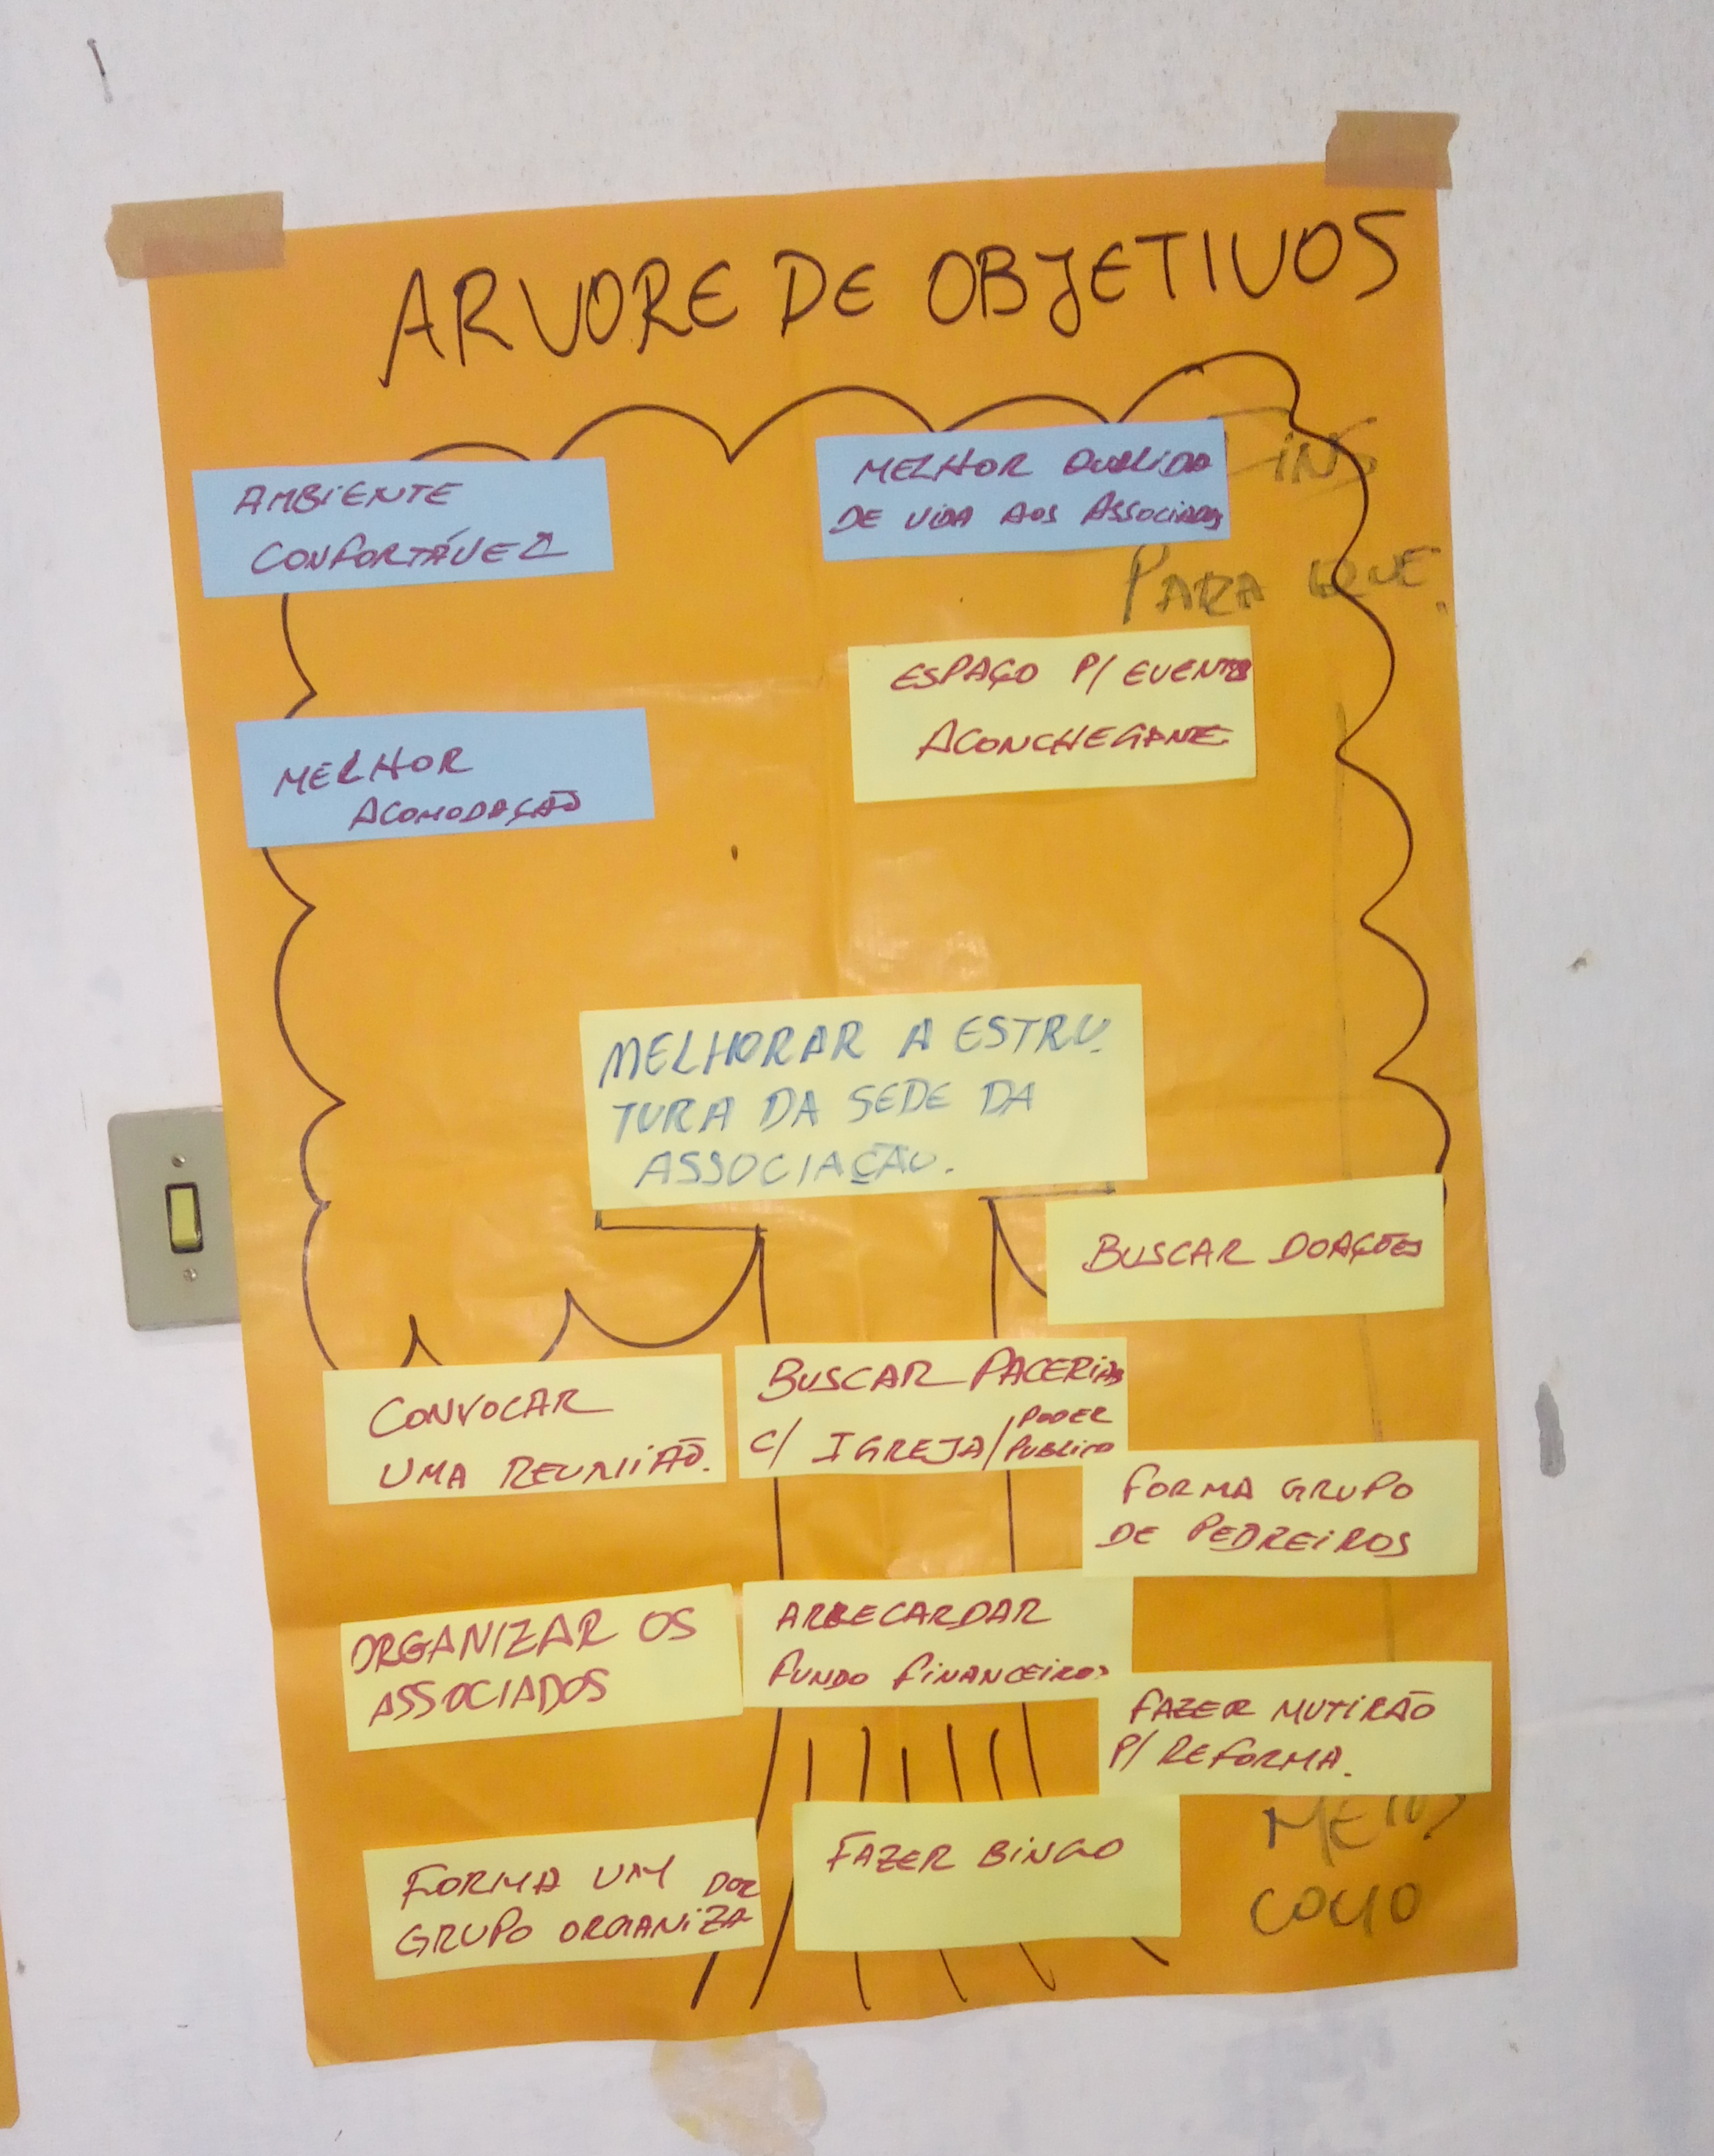 ARVORE DE OBJETIVOS
AMBIENTE
CONFORTÁVEL
MELHOR QUALIDA
DE VIDA AOS ASSOCIADOS
FINS
PARA QUE
MELHOR
ACOMODAÇÃO
ESPAÇO P/ EVENTOS
ACONCHEGANE
MELHORAR A ESTRU
TURA DA SEDE DA
ASSOCIAÇÃO.
BUSCAR DOAÇÕES
CONVOCAR
UMA REUNIÃO.
BUSCAR PACERIAS
C/ IGREJA/PODER
PUBLICO
FORMA GRUPO
DE PEDREIROS
ORGANIZAR OS
ASSOCIADOS
ARRECARDAR
FUNDO FINANCEIROS
FAZER MUTIRÃO
P/ REFORMA.
FORMA UM DOR
GRUPO ORGANIZA
FAZER BINGO
MEIOS
COMO